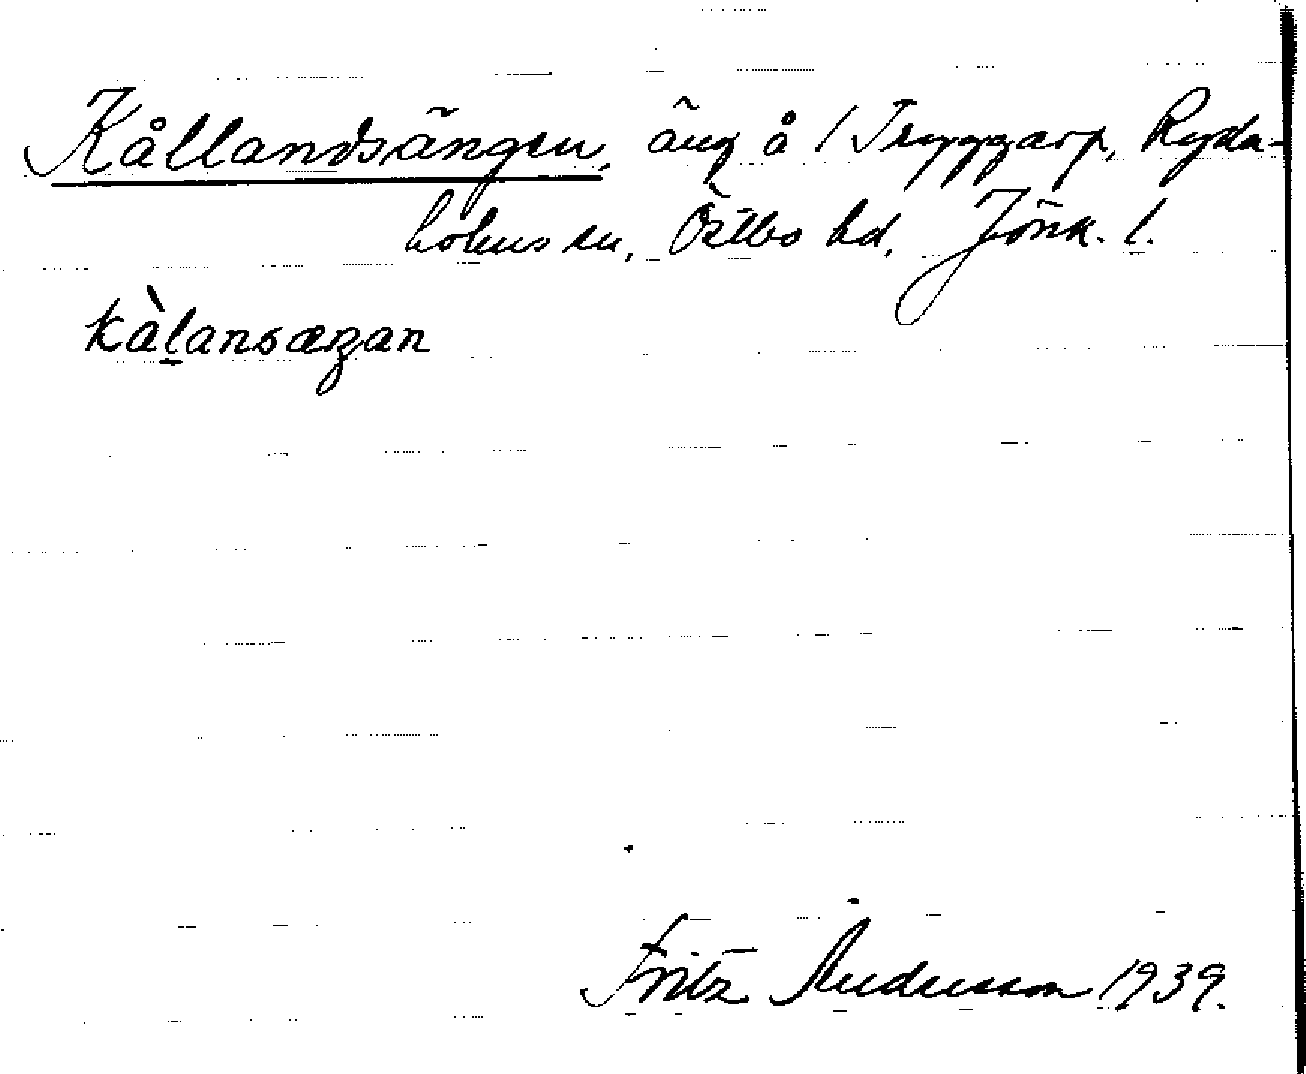 Kållandsängen, äng å 1 Tryggarp, Ryda-
holms sn, Östbo hd, Jönk. l.
kàlansæŋan
Fritz Andersson 1939.